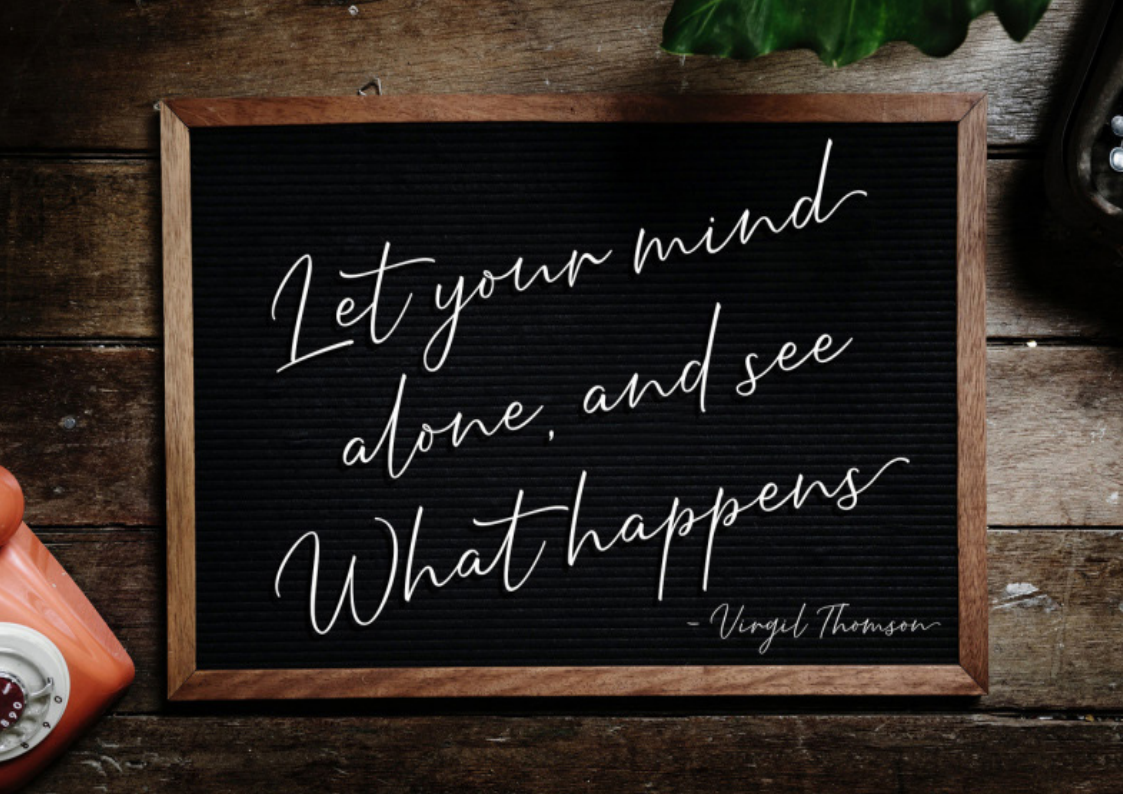 Let your mind
alone, and see
What happens
- Virgil Thomson
890